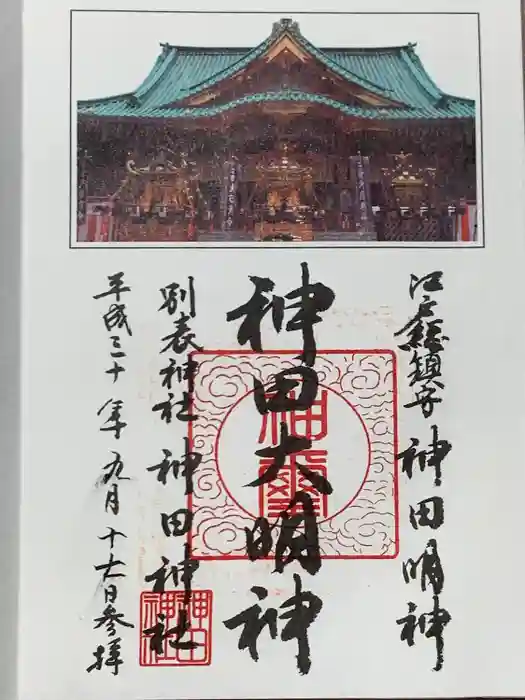 江戸総鎮守 神田明神
神田大明神
別表神社 神田神社
平成三十年 九月 十六日参拝
神田
神社